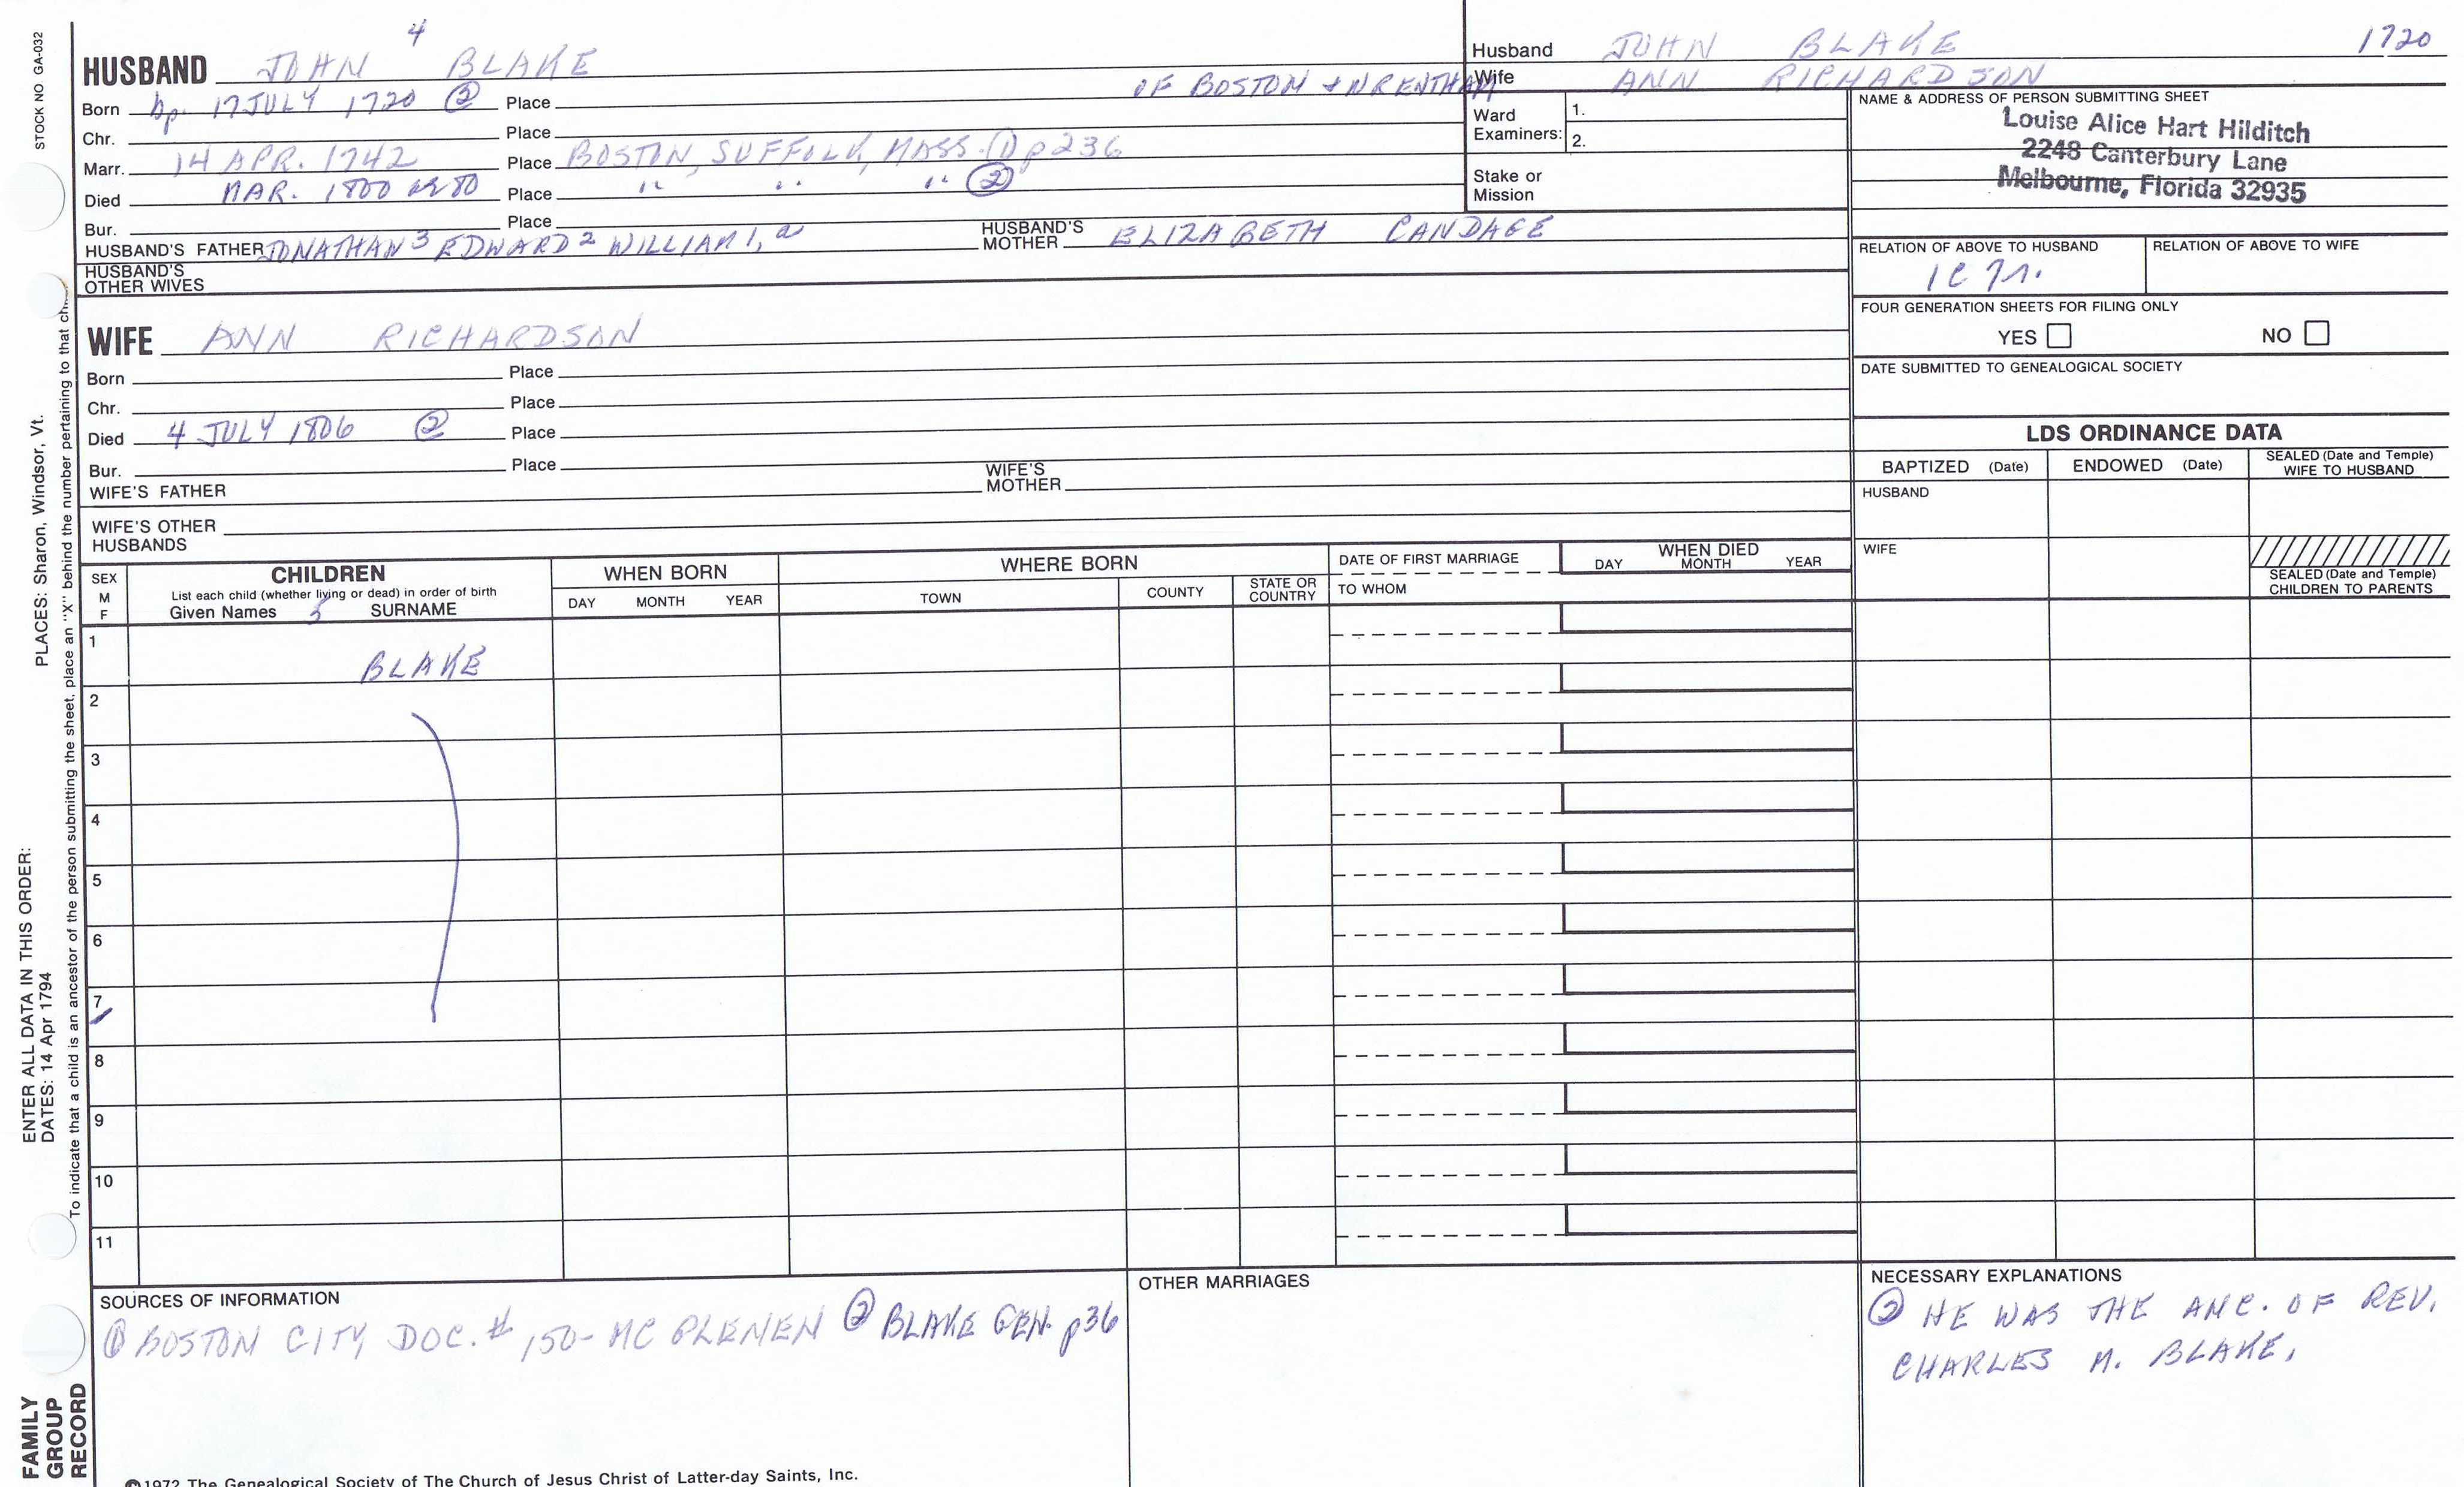 STOCK NO GA-032
HUSBAND JOHN 4 BLAKE
Born bp. 17 JULY 1720 ② Place OF BOSTON + WRENTHAM
Chr. Place
Marr. 14 APR. 1742 Place BOSTON, SUFFOLK, MASS. ① p 236
Died MAR. 1800 ae 80 Place " " " ②
Bur. Place
HUSBAND'S FATHER JONATHAN 3 EDWARD 2 WILLIAM 1, a HUSBAND'S MOTHER ELIZABETH CANDAGE
HUSBAND'S OTHER WIVES
Husband JOHN BLAKE 1720
Wife ANN RICHARDSON
Ward Examiners: 1.
2.
Stake or Mission
NAME & ADDRESS OF PERSON SUBMITTING SHEET
Louise Alice Hart Hilditch
2248 Canterbury Lane
Melbourne, Florida 32935
RELATION OF ABOVE TO HUSBAND RELATION OF ABOVE TO WIFE
FOUR GENERATION SHEETS FOR FILING ONLY
YES NO
DATE SUBMITTED TO GENEALOGICAL SOCIETY
WIFE ANN RICHARDSON
Born Place
Chr. Place
Died 4 JULY 1806 ② Place
Bur. Place
WIFE'S FATHER WIFE'S MOTHER
WIFE'S OTHER HUSBANDS
LDS ORDINANCE DATA
BAPTIZED (Date) ENDOWED (Date) SEALED (Date and Temple) WIFE TO HUSBAND
HUSBAND
WIFE
SEALED (Date and Temple) CHILDREN TO PARENTS
SEX M F
CHILDREN
List each child (whether living or dead) in order of birth
Given Names 5 SURNAME
WHEN BORN
DAY MONTH YEAR
WHERE BORN
TOWN COUNTY STATE OR COUNTRY
DATE OF FIRST MARRIAGE
TO WHOM
WHEN DIED
DAY MONTH YEAR
1 BLAKE
2
3
4
5
6
7
8
9
10
11
SOURCES OF INFORMATION
① BOSTON CITY DOC. # 150- ② BLAKE GEN. p36
OTHER MARRIAGES
NECESSARY EXPLANATIONS
② HE WAS THE ANC. OF REV.
CHARLES M. BLAKE,
PLACES: Sharon, Windsor, Vt.
ENTER ALL DATA IN THIS ORDER:
DATES: 14 Apr 1794
To indicate that a child is an ancestor of the person submitting the sheet, place an "X" behind the number pertaining to that
FAMILY
GROUP
RECORD
©1972 The Genealogical Society of The Church of Jesus Christ of Latter-day Saints, Inc.